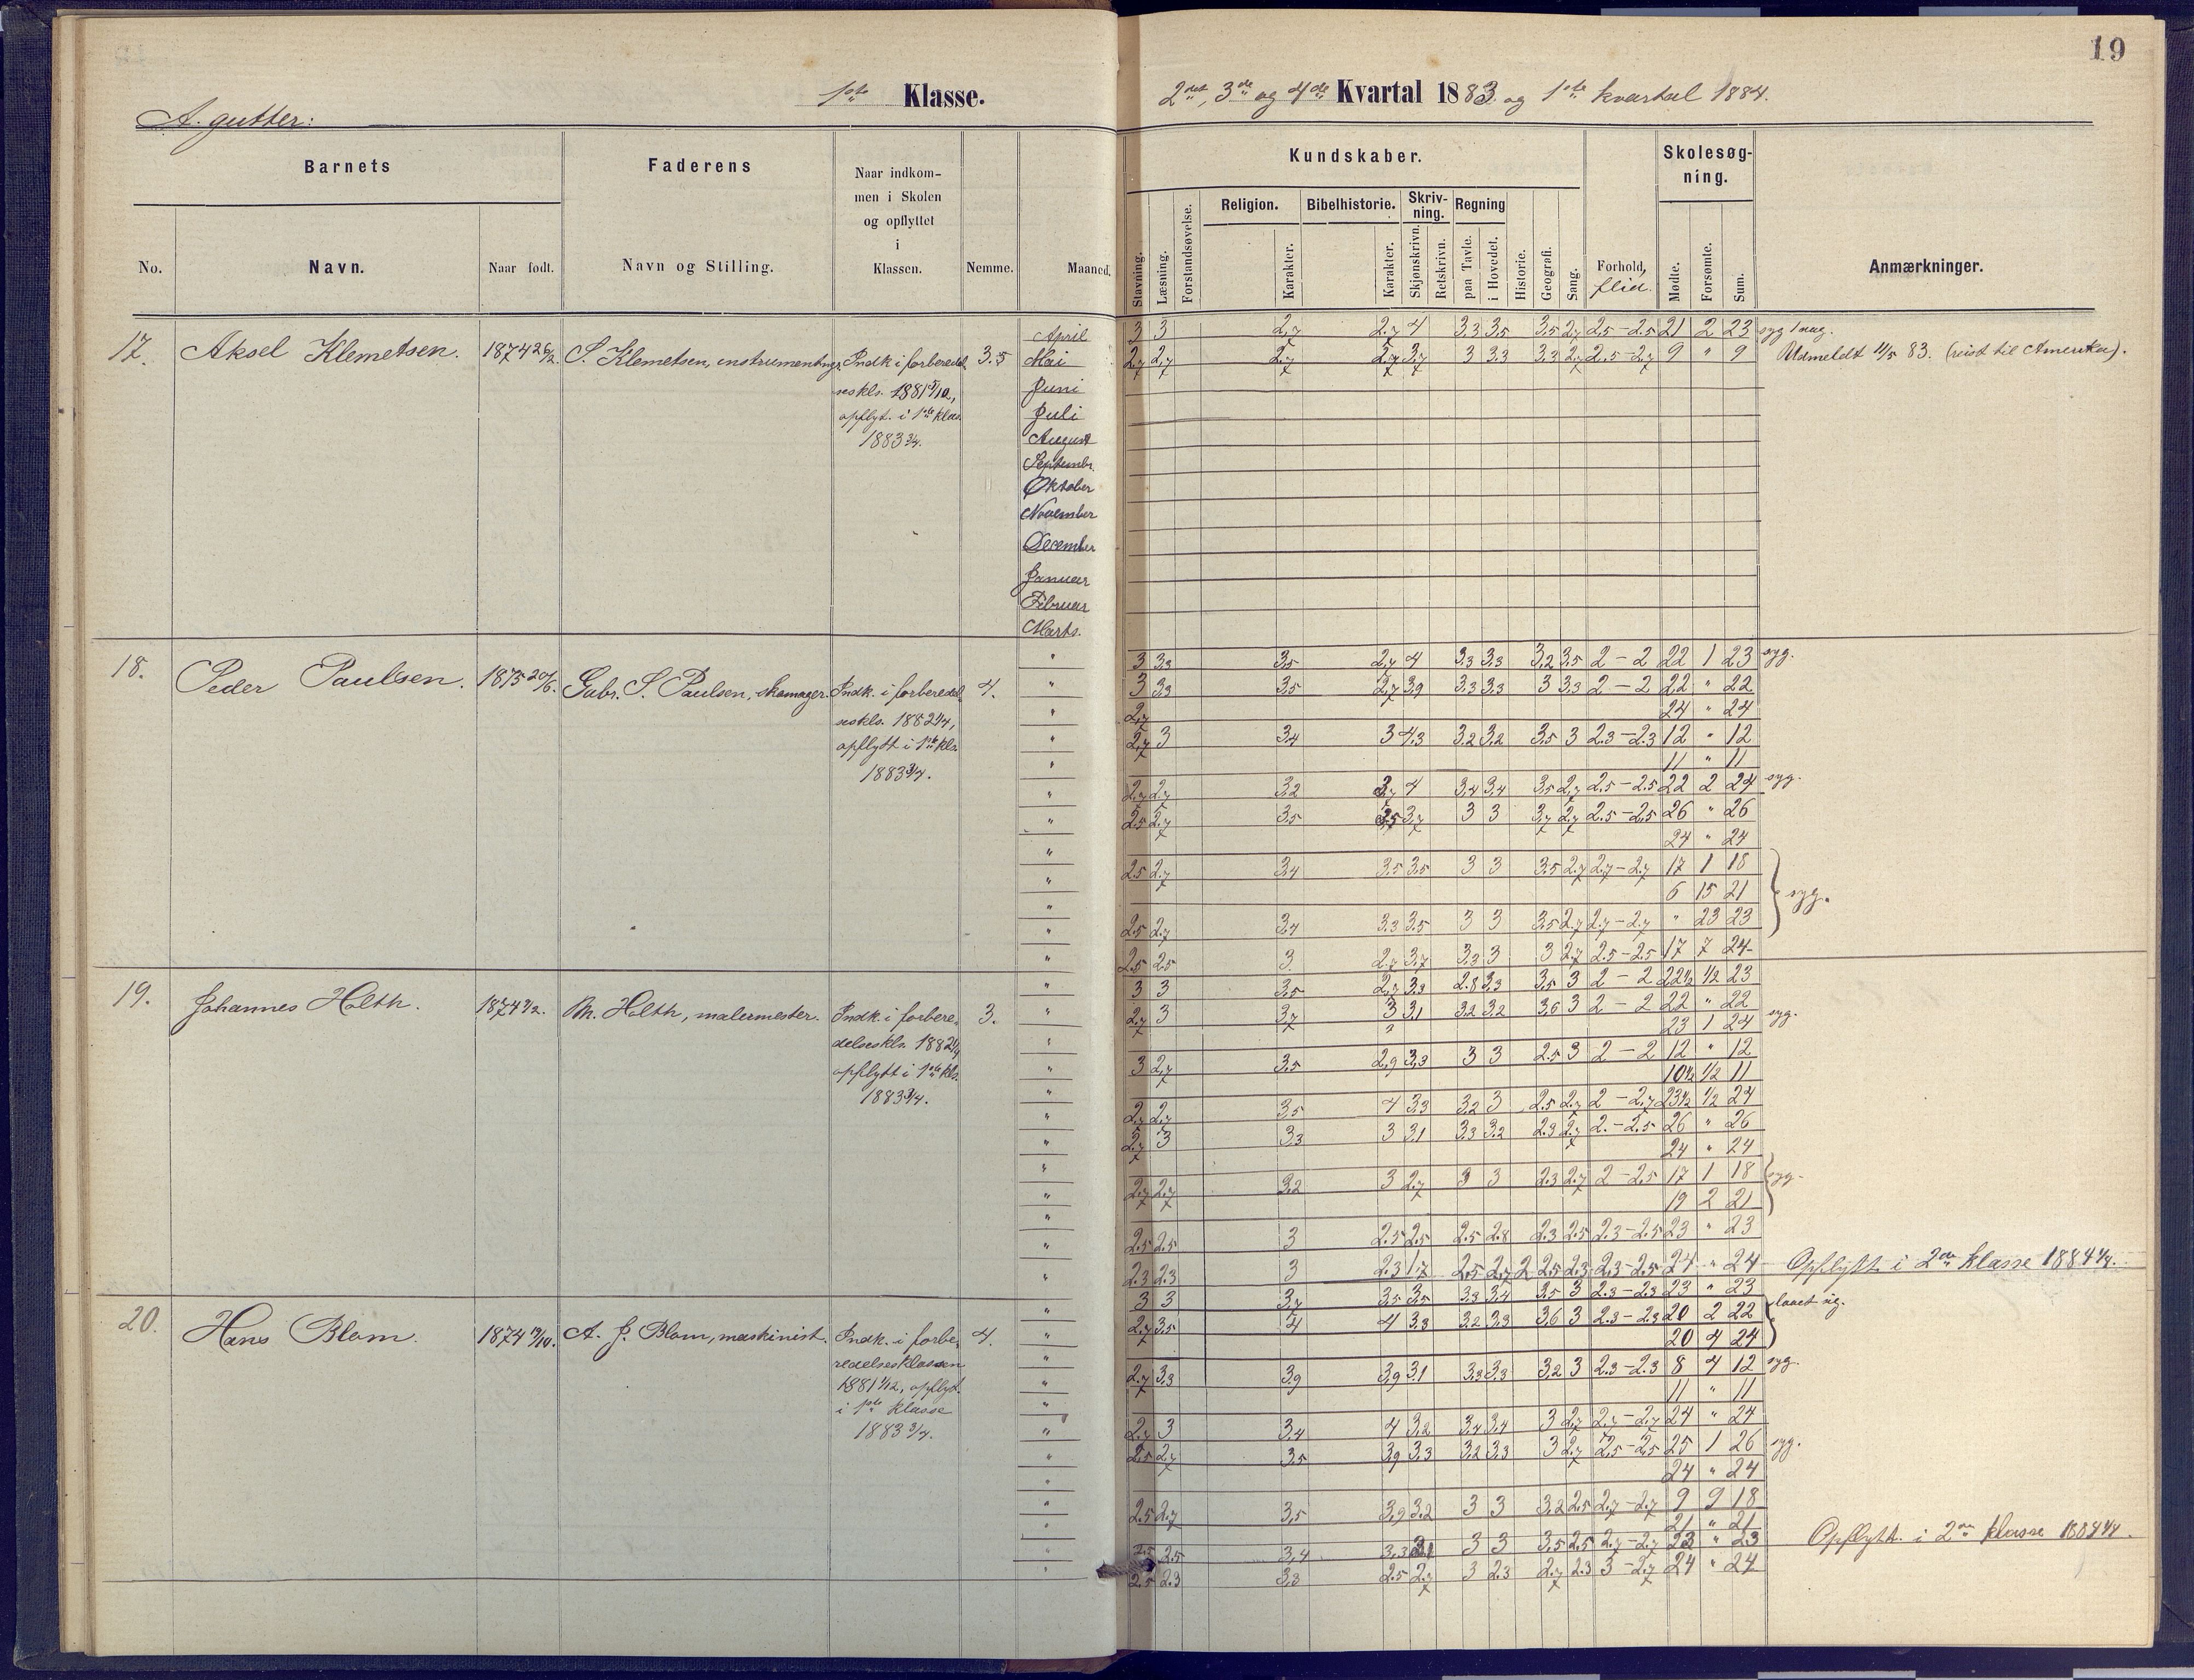 19
1ste Klasse.
2det, 3de og 4de Kvartal 1883 og 1ste kvartal 1884.
A. gutter:
Barnets
Faderens
Naar indkom-
men i Skolen
og opflyttet
i
Klassen.
Kundskaber.
Skolesøg-
ning.
Religion. Bibelhistorie. Skriv-
ning. Regning
No. Navn. Naar født. Navn og Stilling. Nemme. Maaned.
Stavning. Læsning. Forstandsøvelse. Karakter. Karakter. Skjønskrivn. Retskrivn. paa Tavle. i Hovedet. Historie. Geografi. Sang. Forhold, flid. Mødte. Forsømte. Sum. Anmærkninger.
17. Aksel Klemetsen. 1874 26/2. S. Klemetsen, instrumentmgr. Indk. i forberedel-
seskls. 1881 3/10,
opflyt. i 1ste klas.
1883 3/4.
3.5
April 3 3 2,7 2,7 4 3.3 3,5 3,5 2,7 2,5-2,5 21 2 23 syg 1 aug.
Mai 2,7 2,7 2,7 2,7 3,7 3 3.3 3.3 2,7 2,5-2,7 9 " 9 Udmeldt 11/5 83. (reist til Amerika).
Juni
Juli
August
Septembr.
Oktober
November
December
Januar
Februar
Marts.
18. Peder Paulsen. 1875 20/6. Gabr. S. Paulsen, skomager. Indk. i forberedel-
seskls. 1882 1/4,
opflytt i 1ste kls.
1883 3/4.
4.
3 3,3 3,5 2,7 4 3,3 3,3 3,2 3,5 2-2 22 1 23 syg.
3 3,3 3,5 2,7 3,9 3,3 3,3 3 3,3 2-2 22 " 22
2,7 24 " 24
2,7 3 3,4 3 4,3 3.2 3,2 3,5 3 2.3-2.3 12 " 12
11 " 11
2,7 2,7 3,2 3,7 4 3,4 3,4 3,5 2,7 2,5-2,5 22 2 24 syg.
2,5 2,7 3,5 3,5 3,7 3 3 3,7 2,7 2.5-2,5 26 " 26
24 " 24
2,5 2,7 3,4 3,5 3,5 3 3 3,5 2,7 2,7-2,7 17 1 18
6 15 21 syg.
2,5 2,7 3,4 3,3 3,5 3 3 3,5 2,7 2,7-2,7 " 23 23
2,5 2,5 3 2,7 3,7 3,3 3 3 2,7 2,5-2,5 17 7 24
19. Johannes Holth. 1874 7/2. M. Holth, malermester. Indk. i forbere-
delseskls. 1882 1/4
opflytt i 1ste kls.
1883 3/4.
3.
3 3 3,5 2,7 3,3 2.8 3,3 3,5 3 2-2 22 1/2 1/2 23
2,7 3 3,7 3 3,1 3,2 3,2 3,6 3 2-2 22 " 22
23 1 24 syg.
3 2,7 3,5 2,9 3,3 3 3 2.5 3 2-2 12 " 12
10 1/2 1/2 11
2,7 2,7 3,5 4 3,3 3,2 3 2,5 2,7 2-2,7 23 1/2 1/2 24
2,7 3 3,3 3 3,1 3,3 3,2 2.3 2,7 2.-2,5 26 " 26
24 " 24
2,7 2,7 3,2 3 2,7 3 3 2.3 2,7 2-2,5 17 1 18 syg.
19 2 21
2.5 2.5 3 2.5 2,5 2.5 2.8 2.3 2.5 2.3-2.5 23 " 23
2.3 2.3 3 2.3 1,7 2,5 2,7 2 2,5 2.3 2,3-2,5 24 " 24 Opflytt. i 2den klasse 1884 1/4.
20. Hans Blom. 1874 9/10. A. J. Blom, maskinist. Indk. i forbe-
redelsesklassen
1881 1/12, opflyt.
i 1ste klasse
1883 3/4.
4.
3 3 3,7 3,5 3,5 3,3 3,4 3,5 3 2.3-2.3 23 " 23
2,7 3,5 4 4 3,3 3,2 3,3 3,6 3 2.3-2.3 20 2 22
20 4 24
2,7 3,3 3,9 3,9 3,1 3,3 3,3 3,2 3 2.3-2.3 8 4 12 syg.
11 " 11
2,7 3 3,4 4 3,2 3,4 3,4 3 2,7 2,7-2,7 24 " 24
2,5 2,7 3,5 3,9 3,3 3,2 3,3 3 2,7 2,5-2,5 25 1 26 syg.
24 " 24
2.5 2,7 3,5 3,9 3,2 3 3 3,2 2,5 2,7-2,7 9 9 18
21 " 21
2,5 2.5 3,4 3,3 3 3 3,5 2,5 2,7-2,7 23 " 23 Opflytt. i 2den klasse 1884 1/4.
2.5 2.3 3,3 2.5 2,7 3 2.3 2,7 2.3 3-2,7 24 " 24